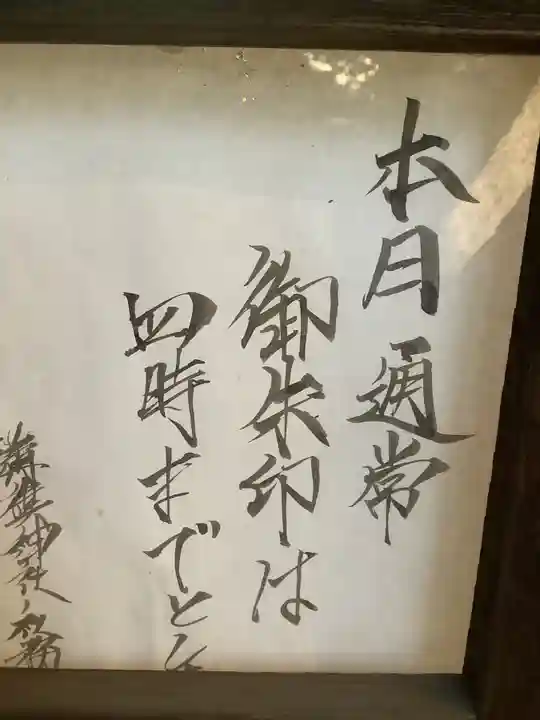 本月通常
御朱印は
四時までと
神社社務